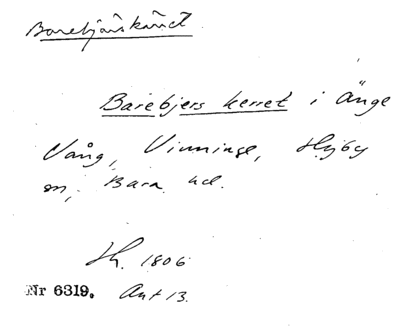 Barebjärskärret
Barebjers kerret i Änge
Vång, Vinninge, Hyby
sn, Bara hd.
Hy. 1806
Nr 6319. Akt 13.